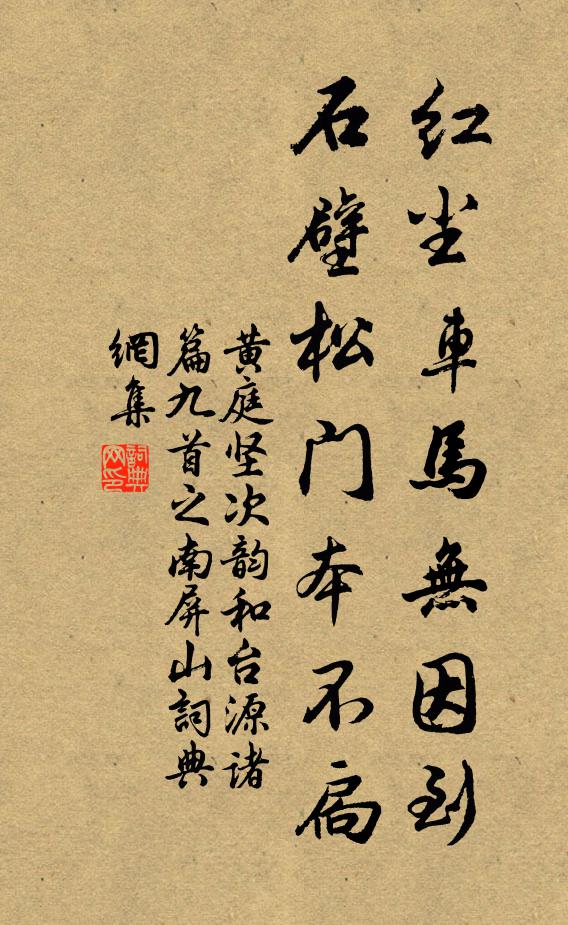 红尘車馬無因到
石壁松门本不扃
黄庭坚次韵和台源诸
篇九首之南屏山詞典
網集
詞典網印